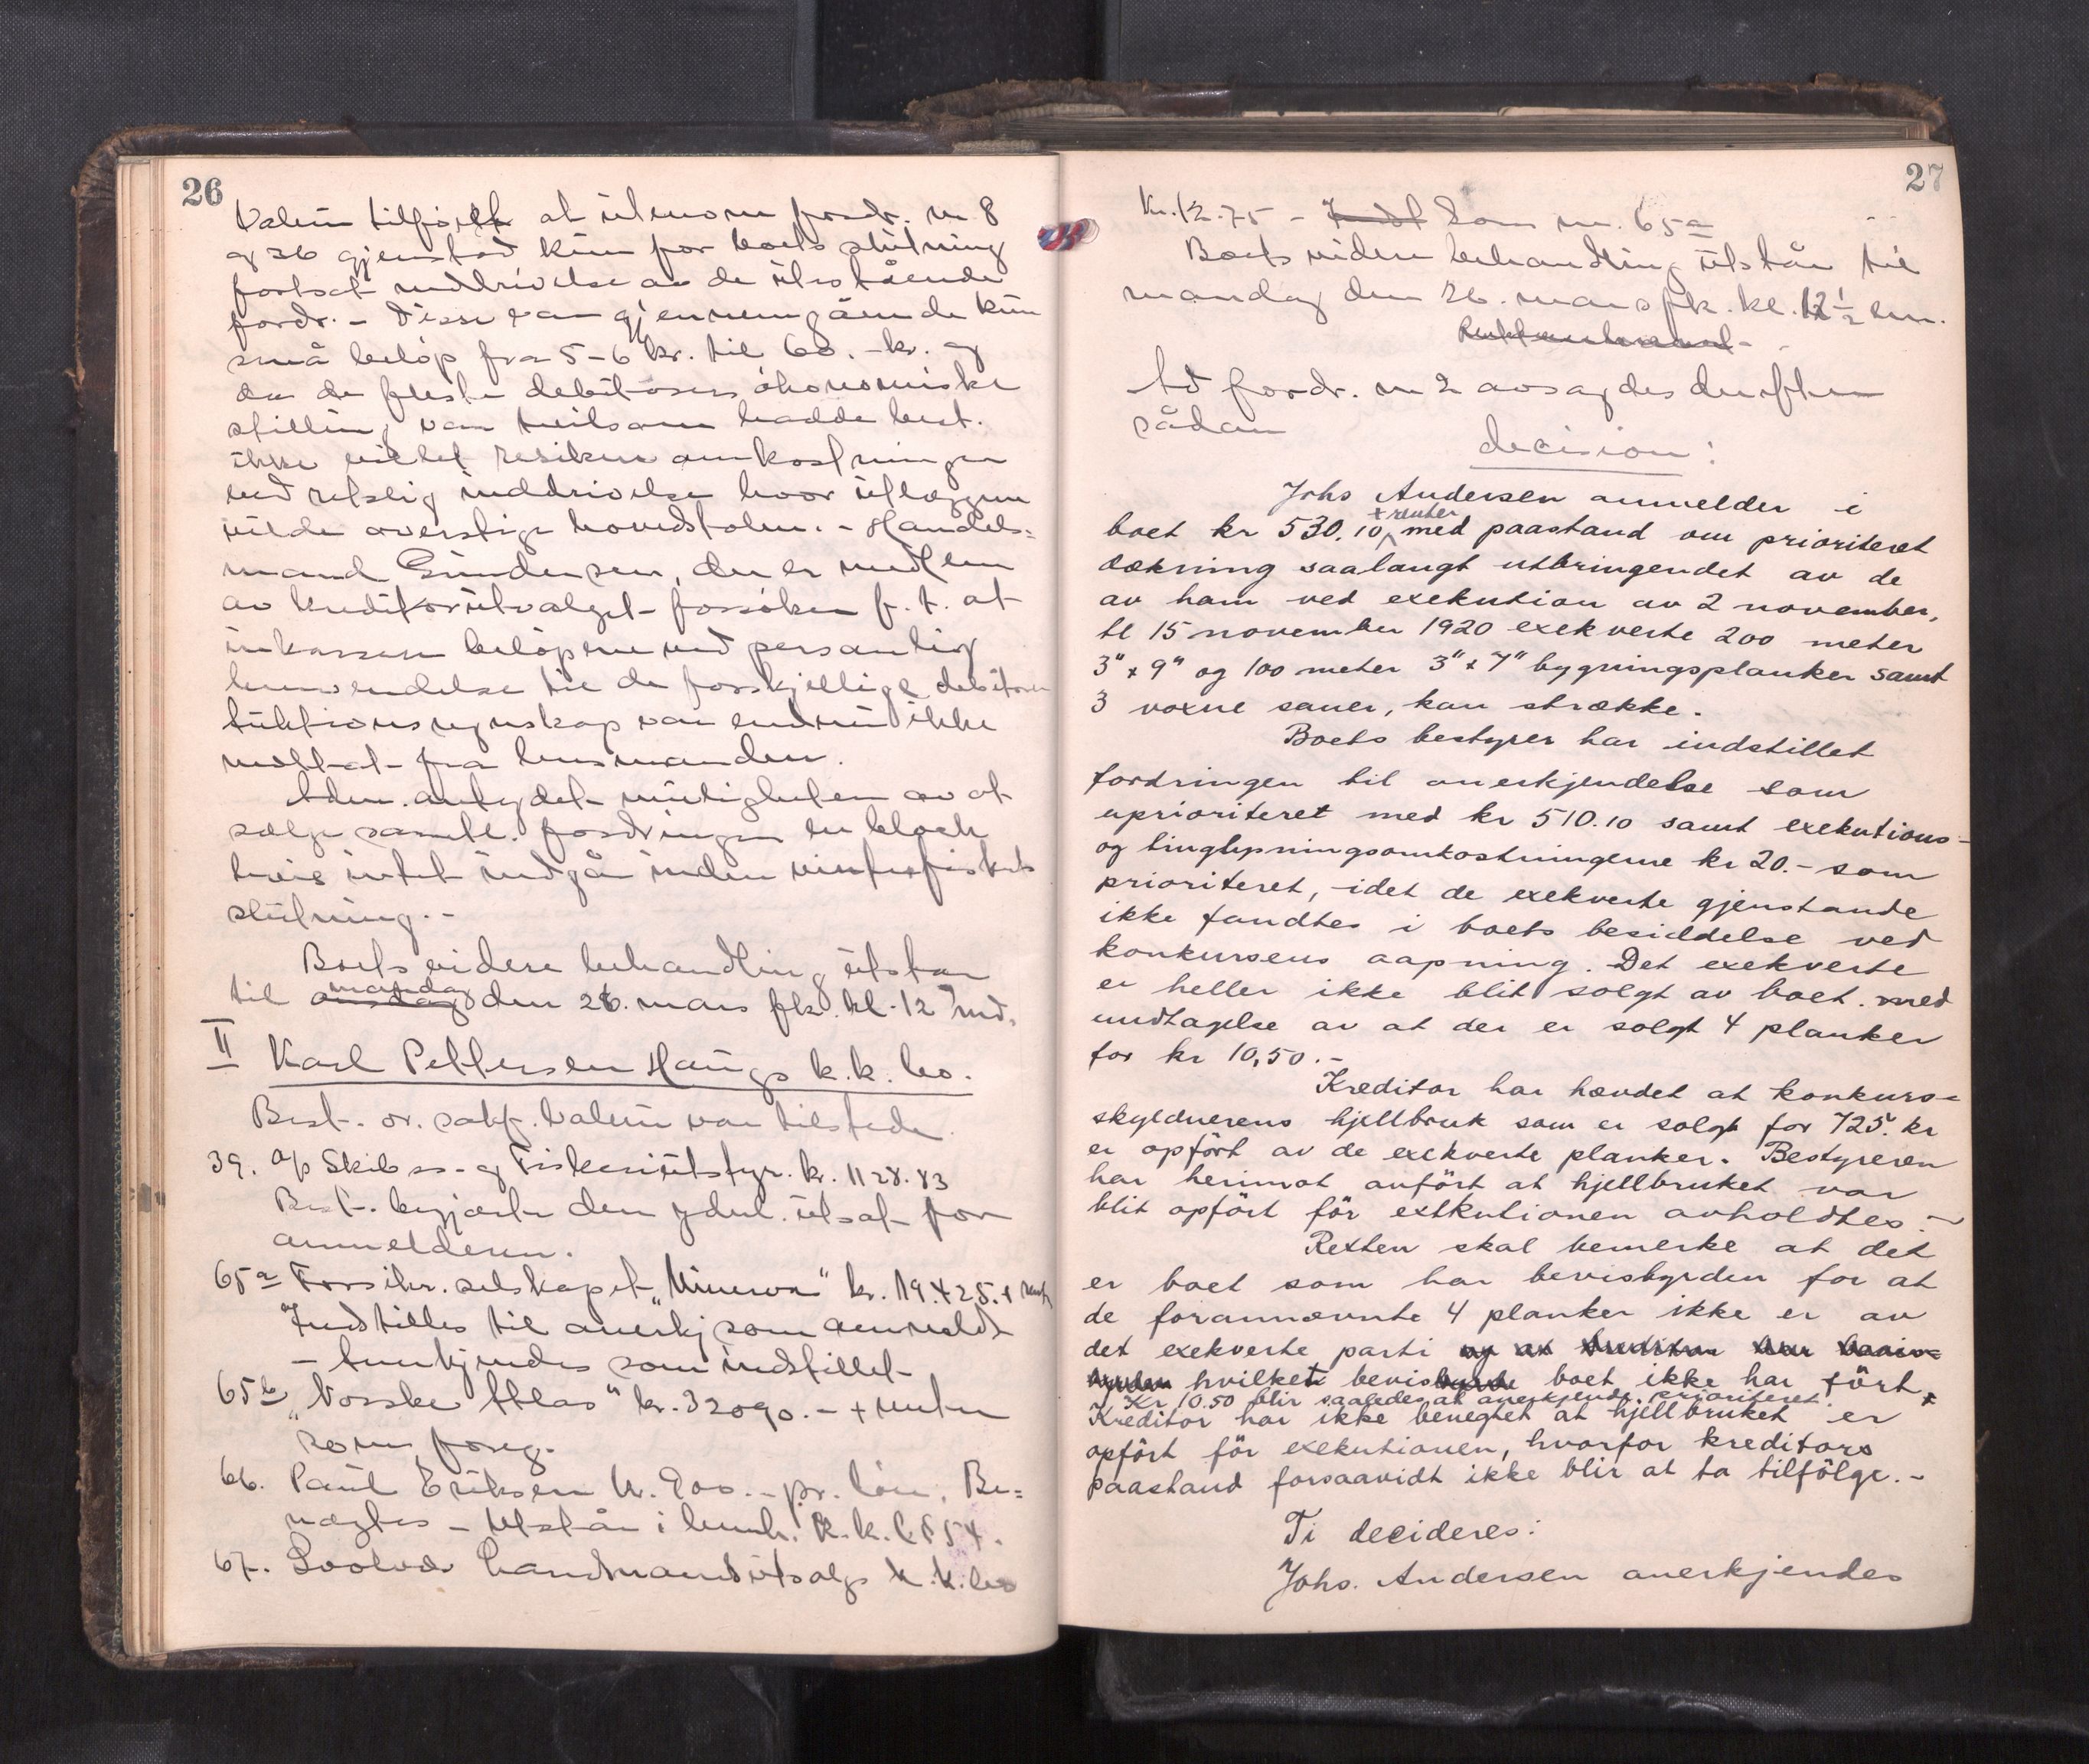 26
Valeur tilförte at utenom fordr. nr 8
og 36 gjenstod kun for boets slutning
fortsat inddrivelse av de utestående
fordr. - Disse var gjennemgående kun
små belöp fra 5-6 kr. til 60.- kr. og
da de fleste debitorers ökonomiske
stilling var tvilsom hadde best.
ikke villet resikere omkostninger
ved retslig inddrivelse hvor utlæggene
vilde overstige hovedstolen. - Handels=
mand Gundersen, der er medlem
av kreditorutvalget forsöker f. t. at
inkassere belöpene ved personlig
henvendelse til de forskjellige debitorer
Auktionsregnskap var endnu ikke
mottat fra lensmanden.
Adm. antydet muligheten av at
sælge samtl. fordringer en block
hvis intet indgår inden vinterfiskets
slutning. -
Boets videre behandling utstår
mandag
til onsdag den 26. mars fk. kl. 12 md.
II Karl Pettersen Haugs k.k. bo.
Best. or. sakf. Valeur var tilstede.
39. A/s Skibs- og Fiskeriutstyr. kr. 1128.83
Best. begjærte den yderl. utsat for
anmelderen.
65a Forsikr. selskapet „Minerva" kr. 119.425. + renter
Indstilles til anerkj som anmeldt
- Anerkjendes som indstillet
65b „Norske Atlas" kr. 32090.- + renter
som foreg.
66. Paul Eriksen kr. 900.- pr. lön. Be=
nægtes - Utstår i henh. K.k.l. § 54.
67. Svolvær Handmandsutsalgs k.k. bo
27
Kr. 12.75 - Indst Som nr. 65a
Boets videre behandling utstår til
mandag den 26. mars fk. kl. 12 1/2 em.
Ad fordr. nr 2 avsagdes derefter
sådan
decision:
Johs Andersen anmelder i
+ renter
boet kr 530.10 med paastand om prioritert
dækning saalangt utbringendet av de
av ham ved exekution av 2 november,
tl 15 november 1920 exekverte 200 meter
3" x 9" og 100 meter 3" x 7" bygningsplanker samt
3 voxne sauer, kan strække.
Boets bestyrer har indstillet
fordringen til anerkjendelse som
uprioriteret med kr 510.10 samt exekutions-
og tinglysningsomkostningerne kr 20.- som
prioriteret, idet de exekverte gjenstande
ikke fandtes i boets besiddelse ved
konkursens aapning. Det exekverte
er heller ikke blit solgt av boet. med
undtagelse av at der er solgt 4 planker
for kr 10,50.-
Kreditor har hævdet at konkurs=
skyldnerens hjellbruk som er solgt for 725. kr
er opfört av de exekverte planker. Bestyreren
har herimot anfört at hjellbruket var
blit opfört för exekutionen avholdtes. -
Retten skal bemerke at det
er boet som har bevisbyrden for at
de forannævnte 4 planker ikke er av
det exekverte parti og at kreditor har bevis=
byrden hvilket bevisbyrde boet ikke har fört.
Kr 10.50 blir saaledes at anerkjende. prioriteret.
Kreditor har ikke benegtet at hjellbruket er
opfört för exekutionen, hvorfor kreditors
paastand forsaavidt ikke blir at ta tilfölge. -
Ti decideres:
Johs. Andersen anerkjendes